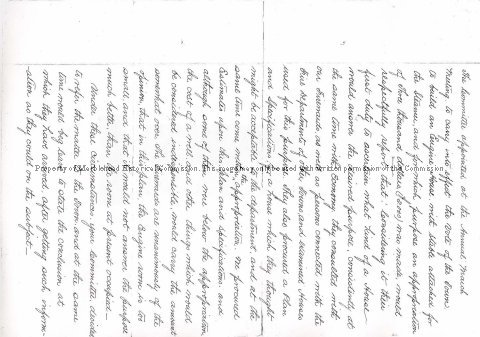 The Committee appointed at the Annual March
Meeting to carry into effect the vote of the Town
to build an Engine House with Stable attached for
the Steam, and for which purpose an appropriation
of Two thousand dollars ($2000) was made, would
respectfully report, that: Considering it their
first duty to ascertain what kind of a House
would answer the desired purpose, consistently at
the same time with economy, they consulted with
our Townsmen as well as persons connected with the
Fire departments of the Towns and examined Houses
used for this purpose, they also procured a plan
and specification, of a house which they thought
might be acceptable to the department and at the
same time come inside the appropriation. We procured
Estimates upon this plan and specification, and
although some of them were below the appropriation,
the cost of a well and other things which would
be considered indispensible, would carry the amount
somewhat over this. The Foremen are unanimously of the
opinion, that in this plan the Engine room is too
small, and that it would not answer the purpose
much better than the room at present occupied—
Under these circumstances, your Committee decided
to refer the matter to the Town and at the same
time would beg leave to state the conclusion at
which they have arrived after getting such inform-
ation as they could on the subject—
Property of Marblehead Historical Commission. This image may only be used with written permission of the Commission.